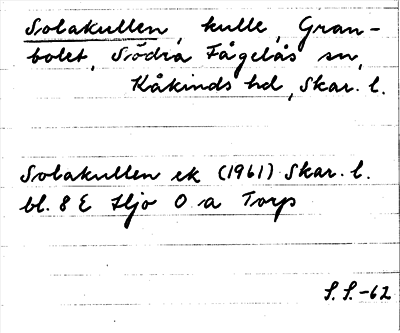 Solakullen, kulle, Gran-
bolet, Södra Fågelås sn,
Kåkinds hd, Skar. l.
Solakullen ek (1961) Skar. l.
bl. 8 E Hjo O a Torp
S. S. -62